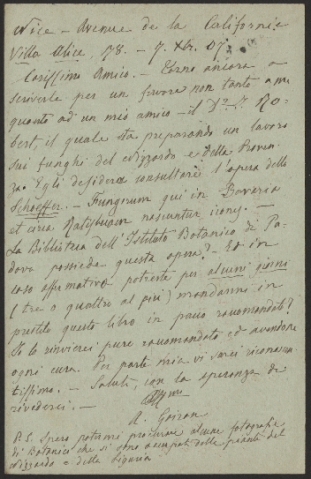 Nice – Avenue de la Californie
Villa Alice, 78. – 7. Xbr. 07
Carissimo Amico. – Torno ancora a
scriverle per un favore non tanto a me
quanto ad un mio amico – il Dr. J. Ro-
bert, il quale sta preparando un lavoro
sui funghi del Nizzardo e della Proven-
za. Egli desidera consultare l'opera dello
Schaeffer. – Fungorum qui in Bavaria
et circa Ratisbonam nascuntur icones. –
La Biblioteca dell'Istituto Botanico di Pa-
dova possiede questa opera? – Ed in
caso affermativo potreste per alcuni giorni
(tre o quattro al più) mandarmi in
prestito questo libro in pacco raccomandato?
Io lo rinvierei pure raccomandato ed avendone
ogni cura. Per parte mia vi sarei riconoscen-
tissimo. – Saluti, con la speranza di
rivederci. –
A. Goiran
P.S. Spero potermi procurare alcune fotografie
di Botanici che si sono occupati delle piante del
Nizzardo o della Liguria